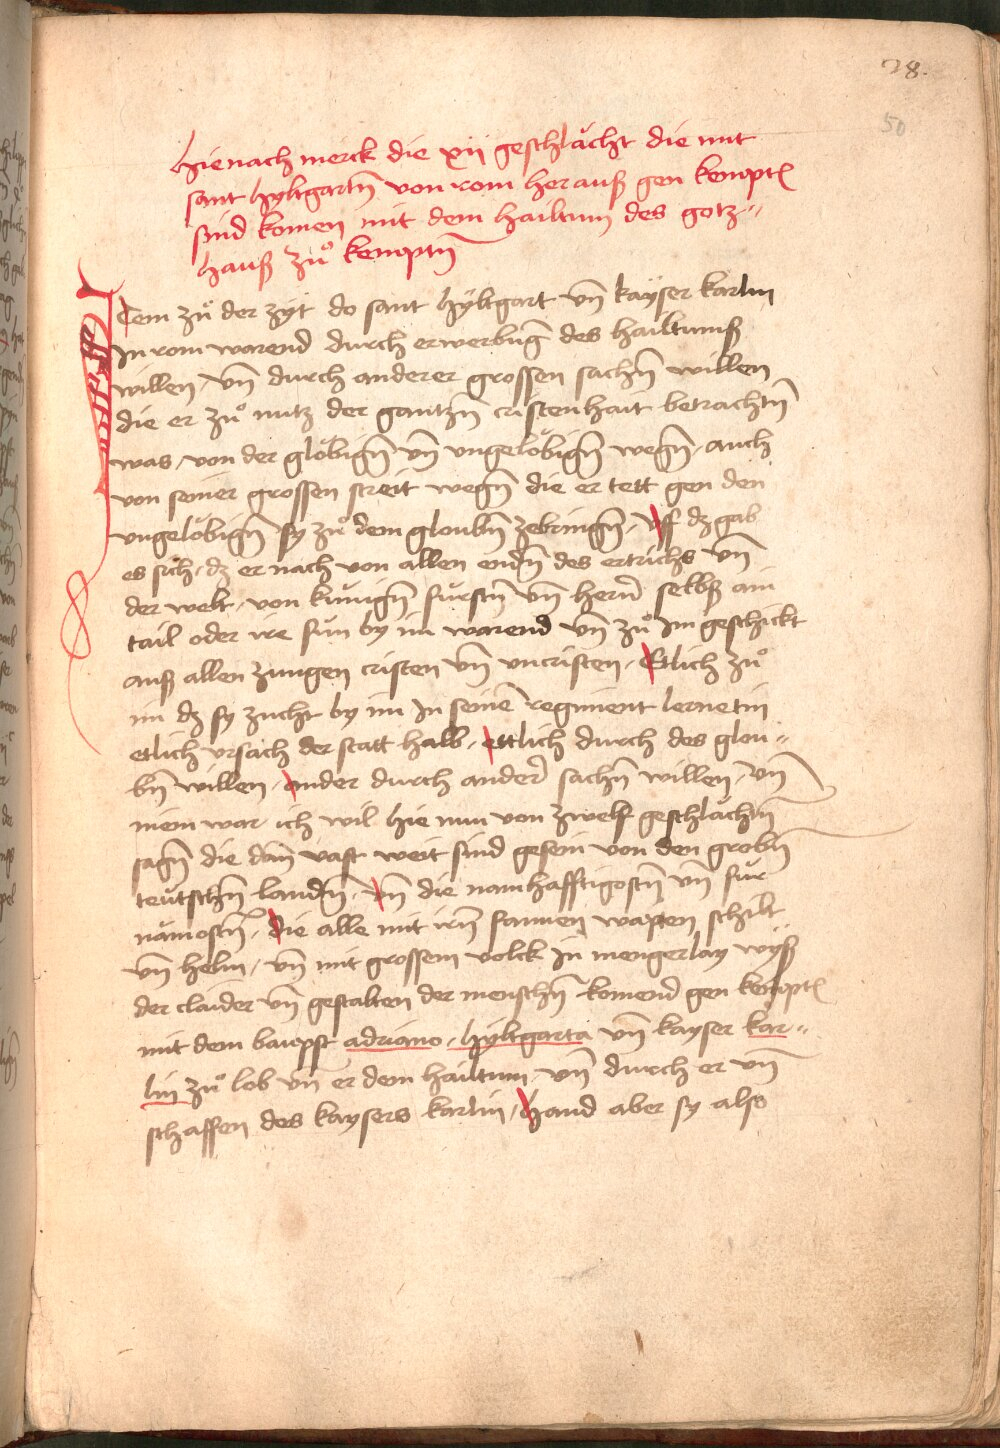 28.
50
Hienach merck die xii geschlächt die mit
sant hyltgartn̄ von rom her auß gen kempt̄
sind komen mit dem hailtum des gotz„
hauß zů kemptn̄
Item zů der zyt do sant hyltgart vn̄ kayser karlin
In rom warend durch erwerbuḡ des hailtumß
willen / vn̄ durch anderer grossen sachn̄ willen
die er zů nutz der gantzn̄ cristenhait betrachtn̄
was / von der glöbign̄ vn̄ vngelöbign̄ wegn̄ / auch
von seiner grossen streit wegn̄ die er tett gen den
vngelöbign̄ sy zů dem gloubn̄ zebringn̄ / vf dz gab
es sich / dz er nach von allen endn̄ des ertrichs vn̄
der welt / von kunign̄ fürstn̄ vn̄ hern̄ selbß ain
tail oder ire sün by im warend vn̄ zů Im geschickt
auß allen zungen cristen vn̄ vncristen / Etlich zů
im dz sy zucht by im In seinē regiment lernetin
etlich vrsach der statt halb / ettlich durch des glou„
bn̄ willen / ander durch anderr̄ sachn̄ willen / vn̄
niem war ich wil hie nun von zwelf geschlächtn̄
sagn̄ die dan̄ vast weit sind gesein von den grobn̄
teutschn̄ landn̄ / vn̄ die namhafftigostn̄ vn̄ für
nämostn̄ / die alle mit irn̄ fannen wapten schilt
vn̄ helm / vn̄ mit grossem volck In mengerlay wyß
der claider vn̄ gestalten der menschn̄ komend gen kempt̄
mit dem baupst adriano / hyltgarta vn̄ kayser kar„
lin zů lob vn̄ er dem hailtum vn̄ durch er vn̄
schaffen des kaysers karlin / hand aber sy also